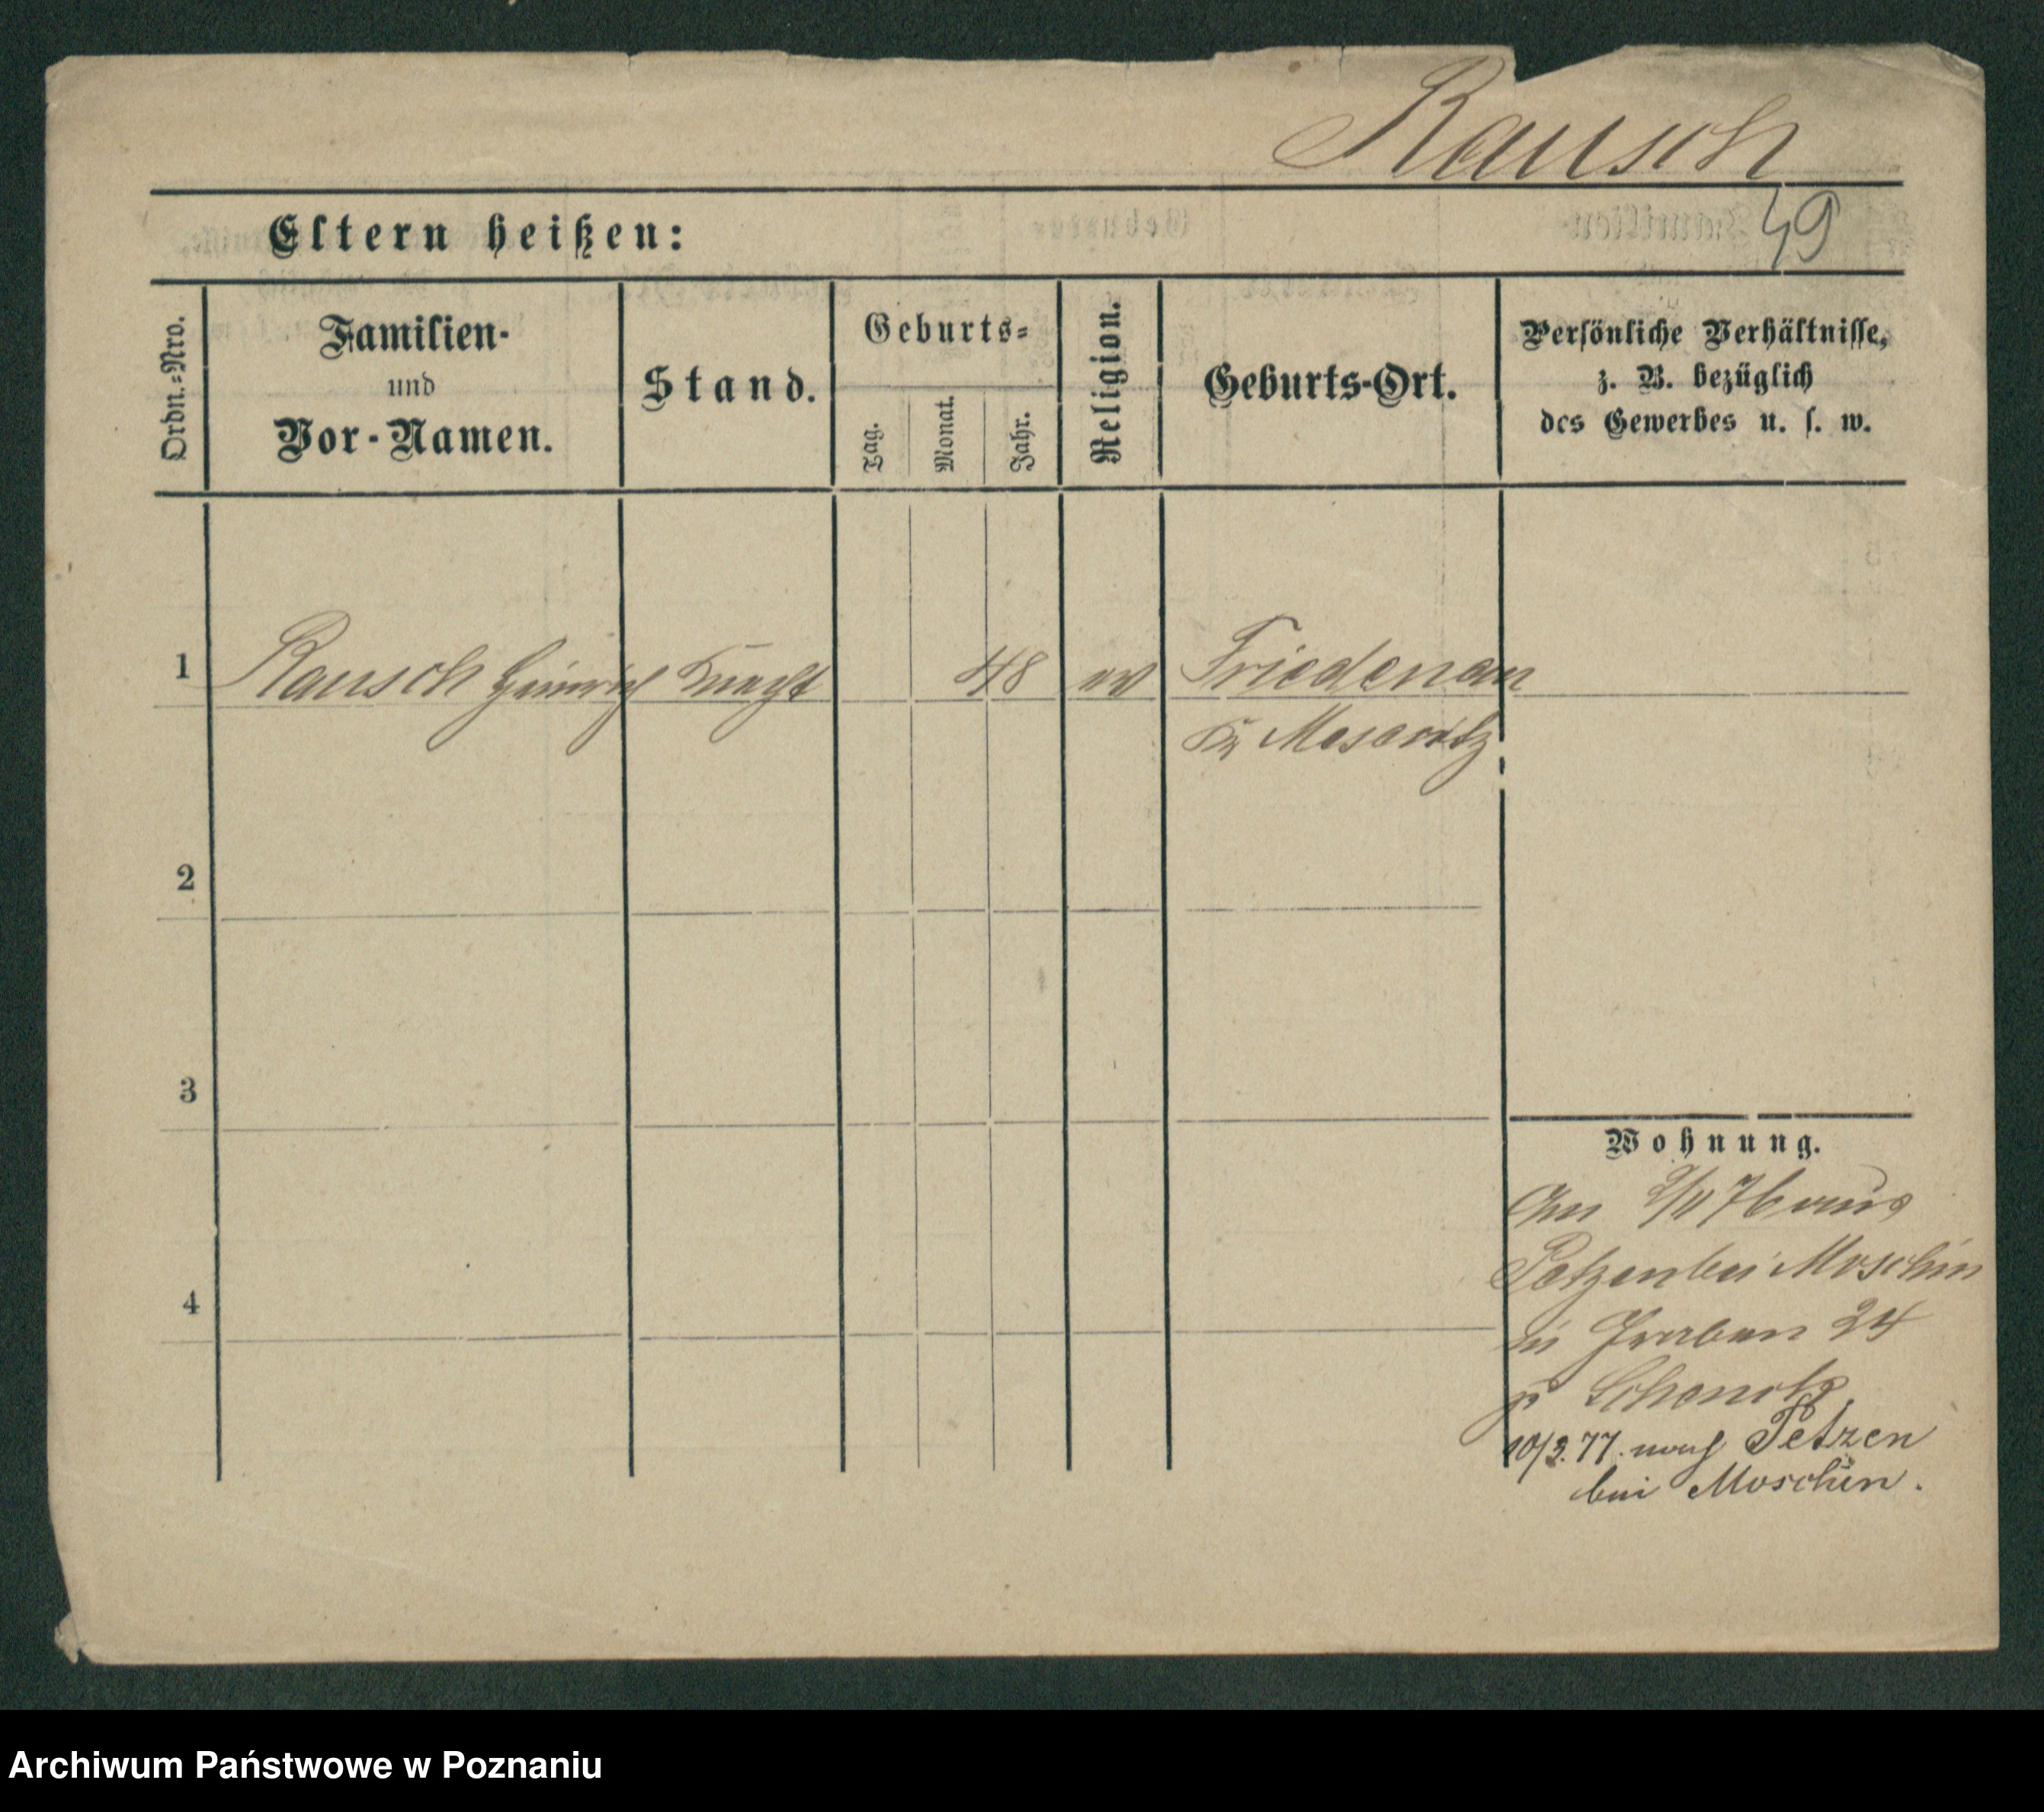 Rausch
49
Eltern heißen:
Ordn.=Nro.
Familien-
und
Vor-Namen.
Stand.
Geburts=
Tag.
Monat.
Jahr.
Religion.
Geburts-Ort.
Persönliche Verhältnisse,
z. B. bezüglich
des Gewerbes u. s. w.
1 Rausch Heinrich Knecht 48 ev Friedenau
Kr Meseritz
2
3
4
Wohnung.
Am 2/11 76 aus
Petzen bei Moschin
in Graben 24
10/3. 77. nach Petzen
bei Moschin.
Archiwum Państwowe w Poznaniu